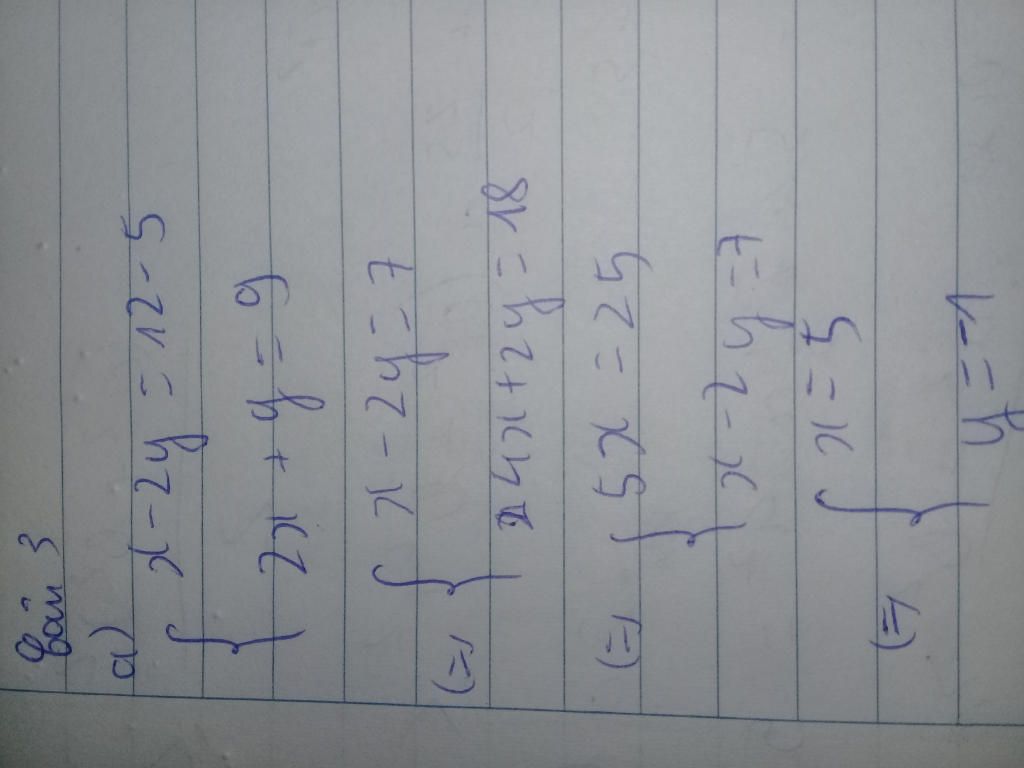 Bài 3
a) { x - 2y = 12 - 5
2x + y = 9
(=) { x - 2y = 7
4x + 2y = 18
(=) { 5x = 25
x - 2y = 7
(=) { x = 5
y = -1